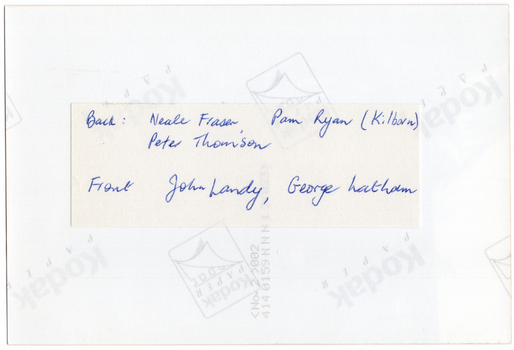 Back: Neale Fraser, Pam Ryan (Kilborn)
Peter Thomson
Front John Landy, George Latham
Kodak
PAPER
Kodak
PAPER
Kodak
PAPER
Kodak
PAPER
<No. 2 2002